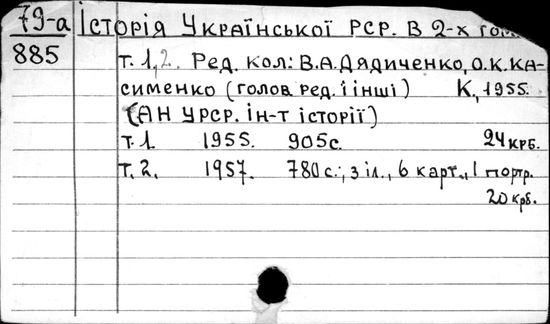 79-а Історія Української РСР. В 2-х том
885 т. 1,2. Ред. кол: В.А.Дядиченко, О.К.Ка-
сименко (голов. ред. і інші) К., 1955.
(АН УРСР. ін-т історії)
т. 1. 1955. 905с. 24 крб.
т. 2. 1957. 780 с., з іл., 6 карт., 1 портр.
20 крб.